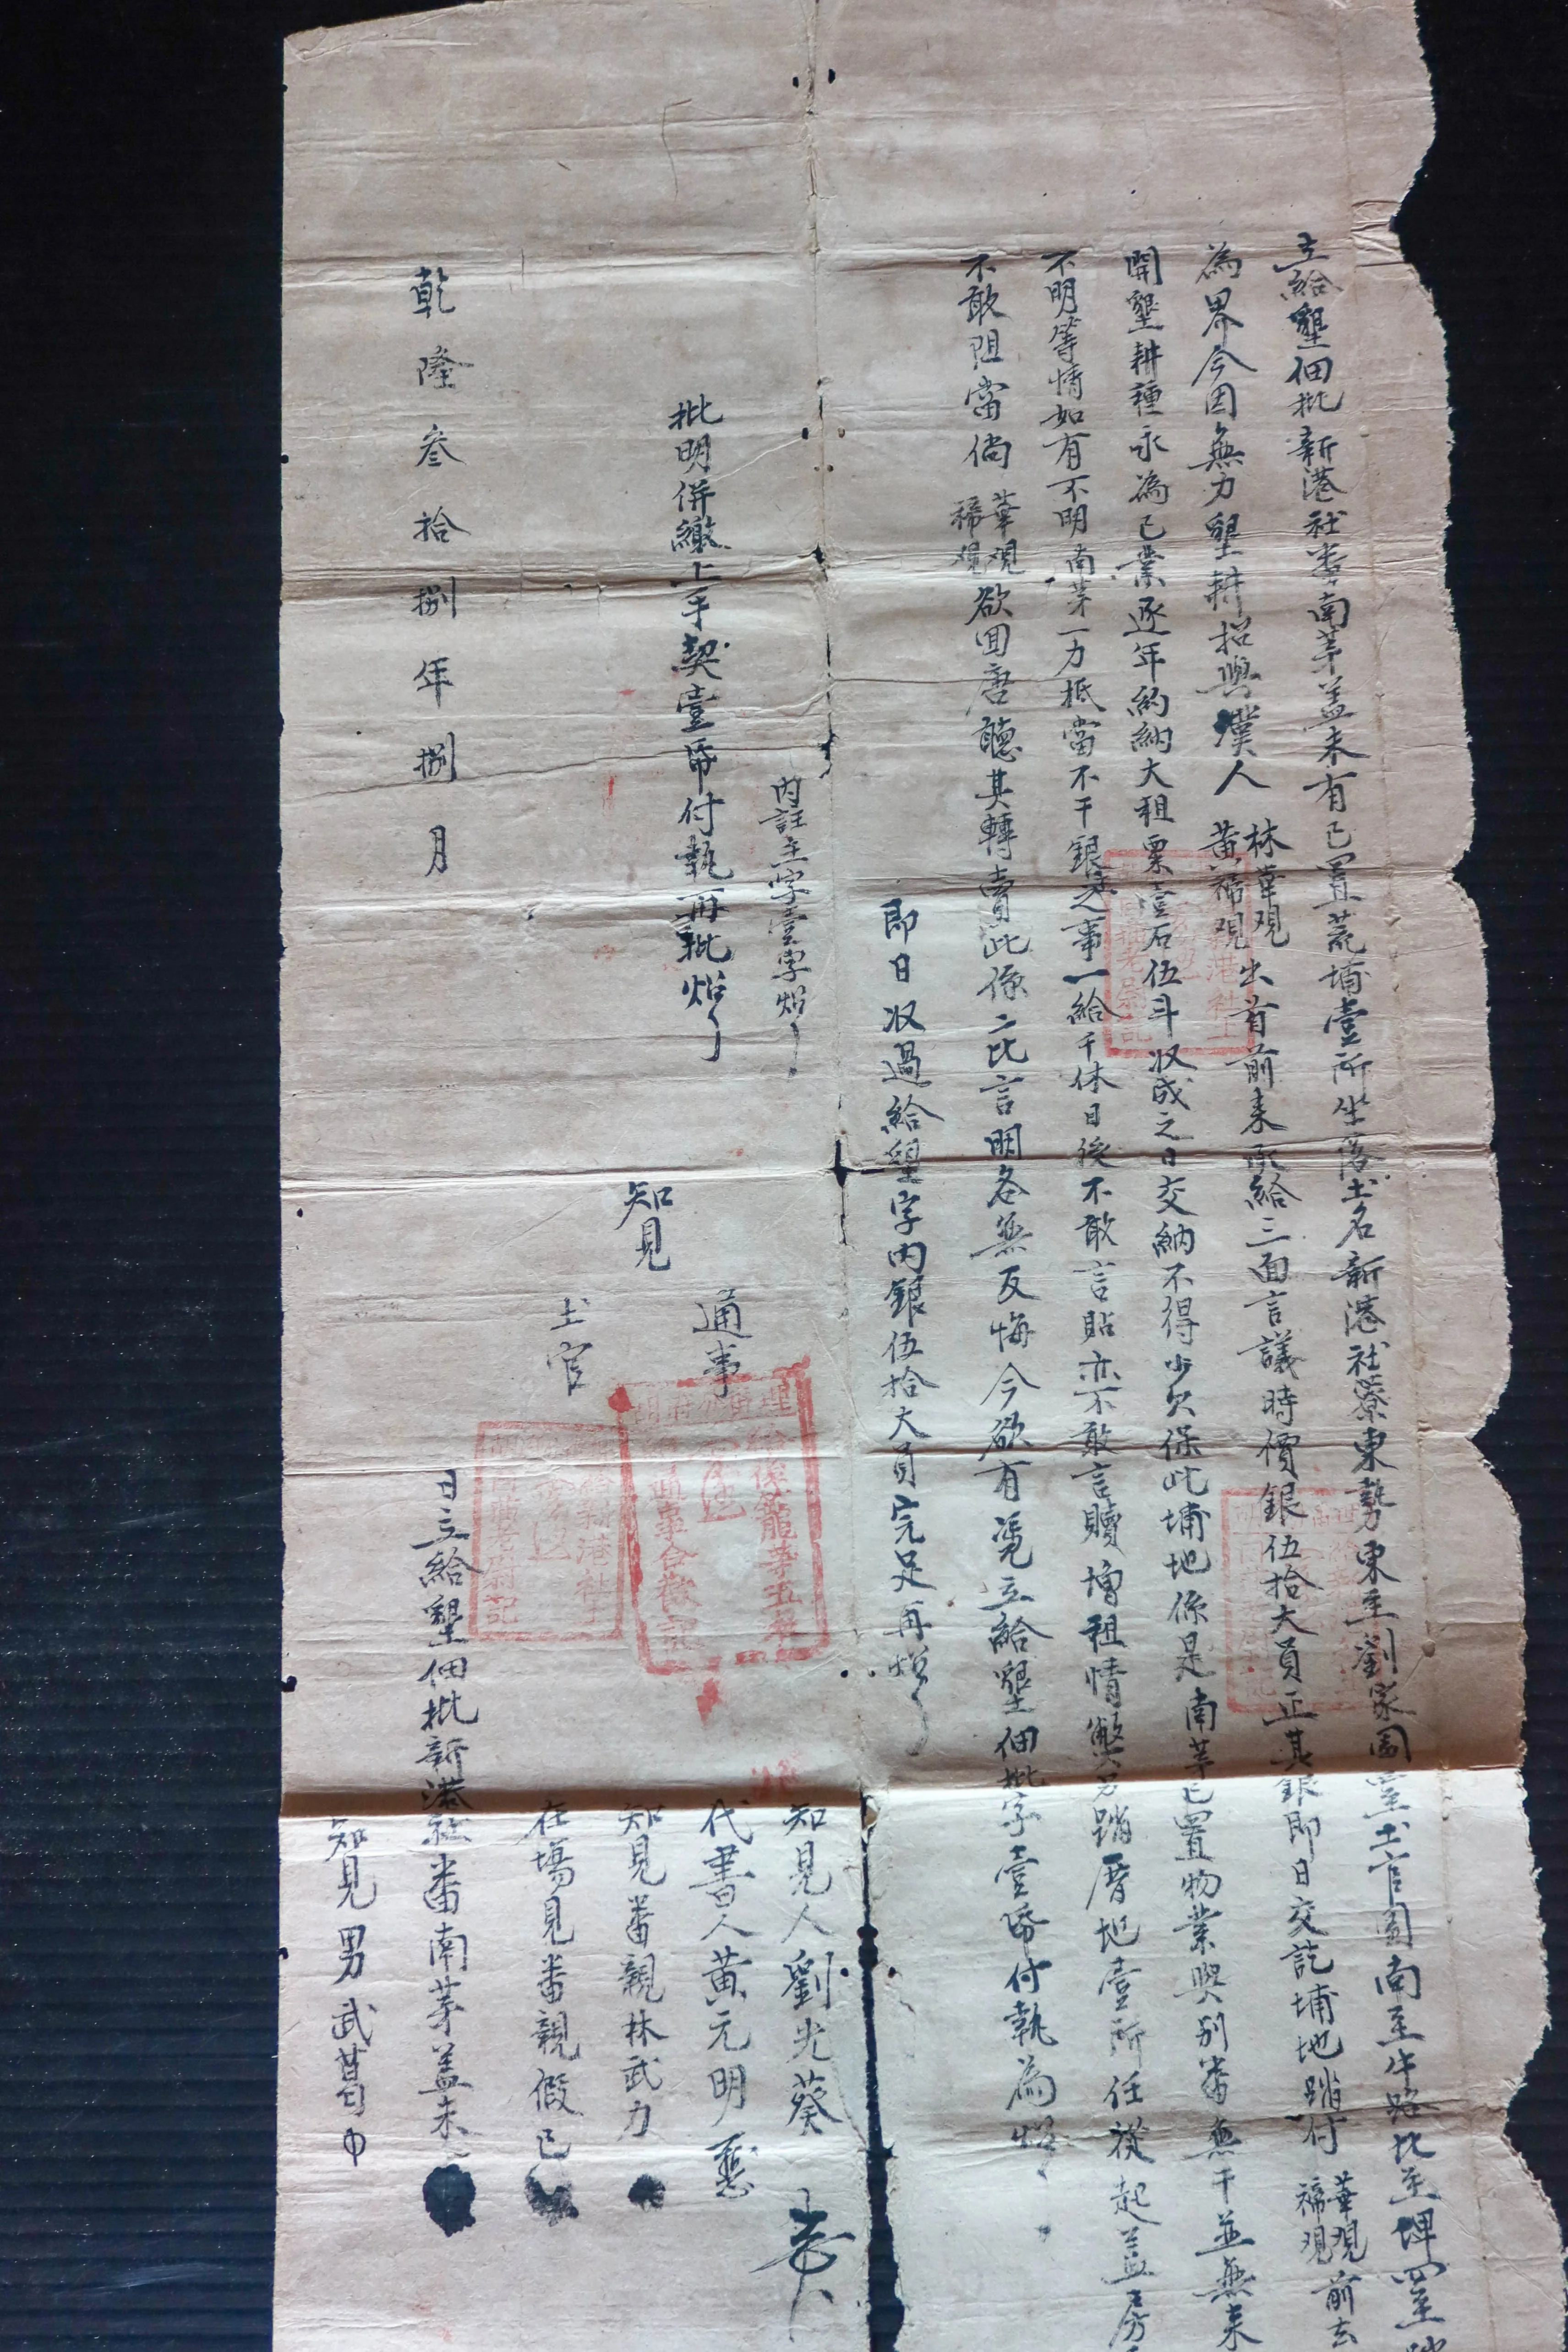 立給墾佃批新港社番南茅盖未有已置荒埔壹所坐落土名新港社藔東勢東至劉家園西至土官園南至牛路北至埤四至
為界今因無力墾耕招與漢人林華观黄禘观出首前來承給三面言議時價銀伍拾大員正其銀即日交訖埔地踏付華观禘观前去
開墾耕種永為己業逐年約納大租粟壹石伍斗收成之日交納不得少欠保此埔地係是南茅已置物業與別番無干並無來
不明等情如有不明南茅一力抵當不干銀主之事一給千休日後不敢言貼亦不敢言贖增租情弊另踏厝地壹所任從起盖房
不敢阻當倘華观禘观欲回唐聽其轉賣此係二比言明各無反悔今欲有凭立給墾佃批字壹帋付執為炤
即日収過給墾字內銀伍拾大員完足再炤
內註主字壹字炤
批明併繳上手契壹帋付執再批炤
知見
通事
土官
知見人劉光葵
代書人黄元明
知見番親林武力
在塲見番親假已
乾隆叁拾捌年捌月日立給墾佃批新港社番南茅盖未
知見男武葛